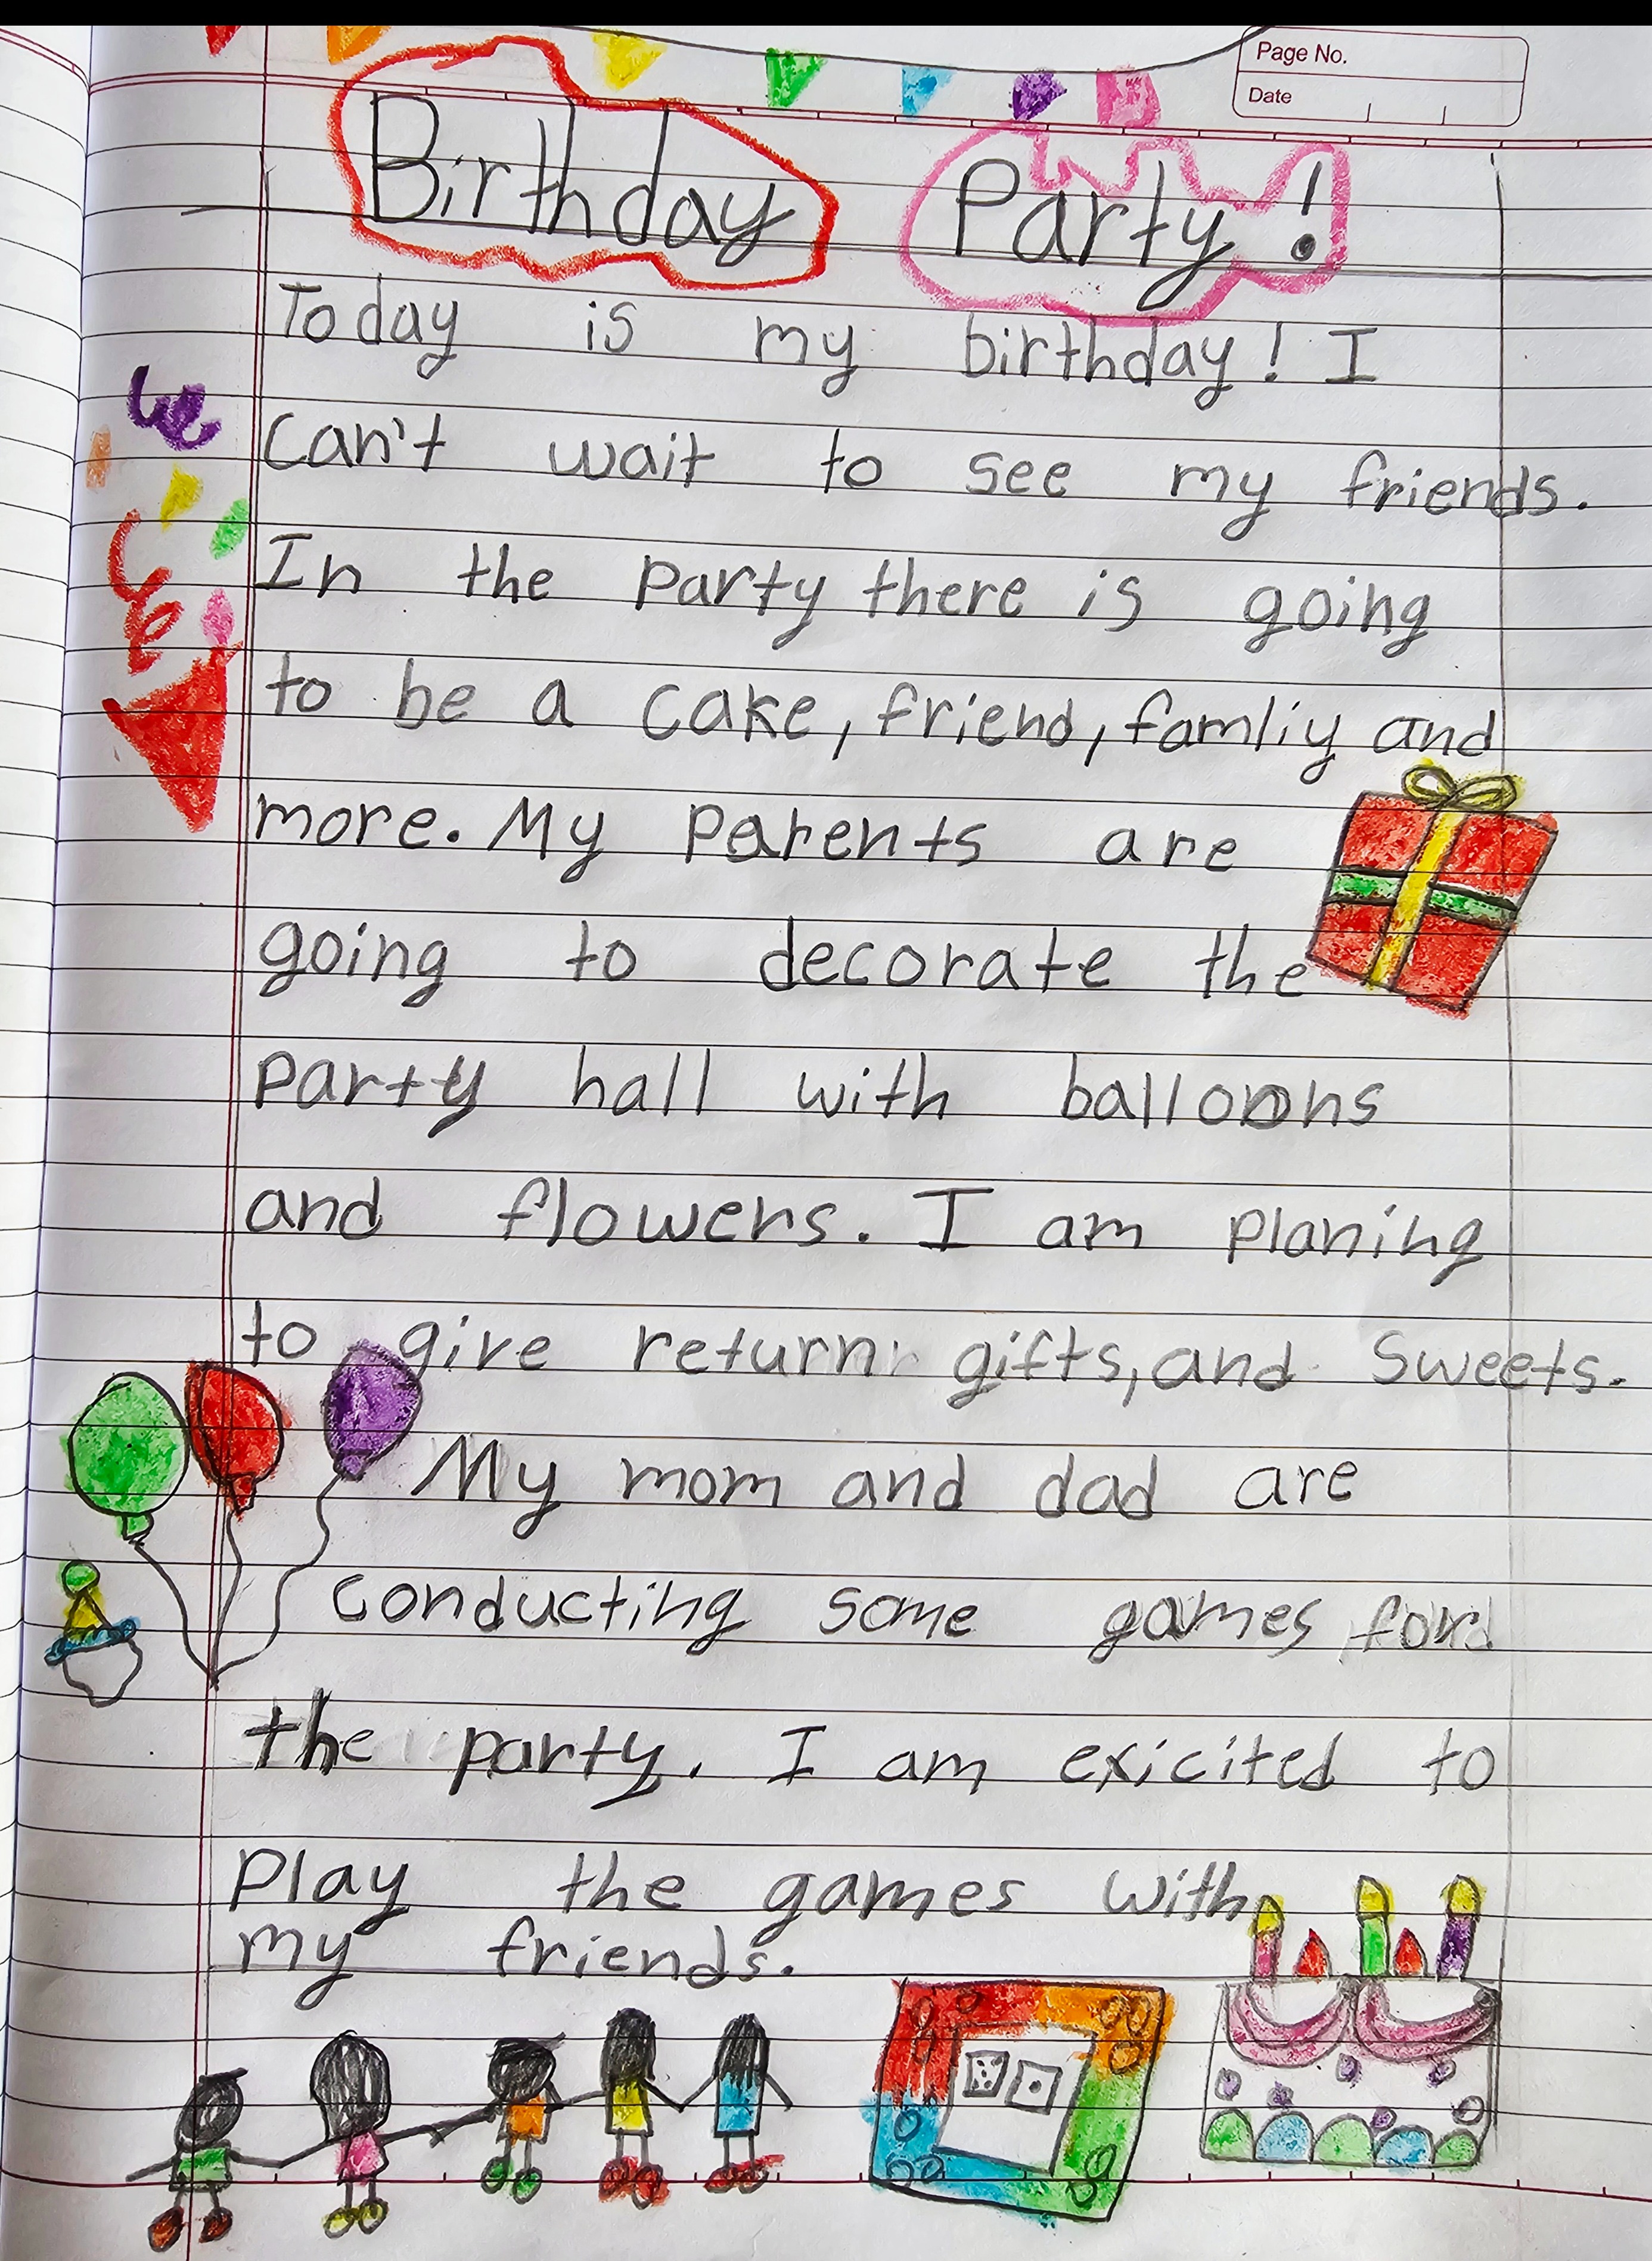 Page No.
Date
Birthday Party!
Today is my birthday! I
can't wait to see my friends.
In the party there is going
to be a cake, friend, famliy and
more. My parents are
going to decorate the
party hall with balloons
and flowers. I am planing
to give return gifts, and sweets.
My mom and dad are
conducting some games for
the party. I am exicited to
play the games with
my friends.